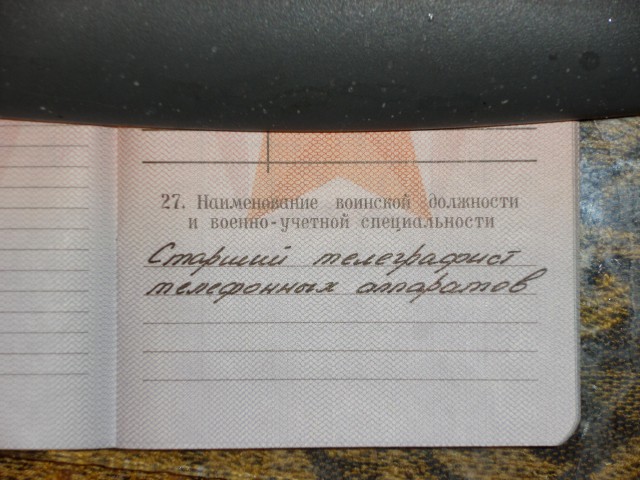 27. Наименование воинской должности
и военно-учетной специальности
Старший телеграфист
телефонных аппаратов